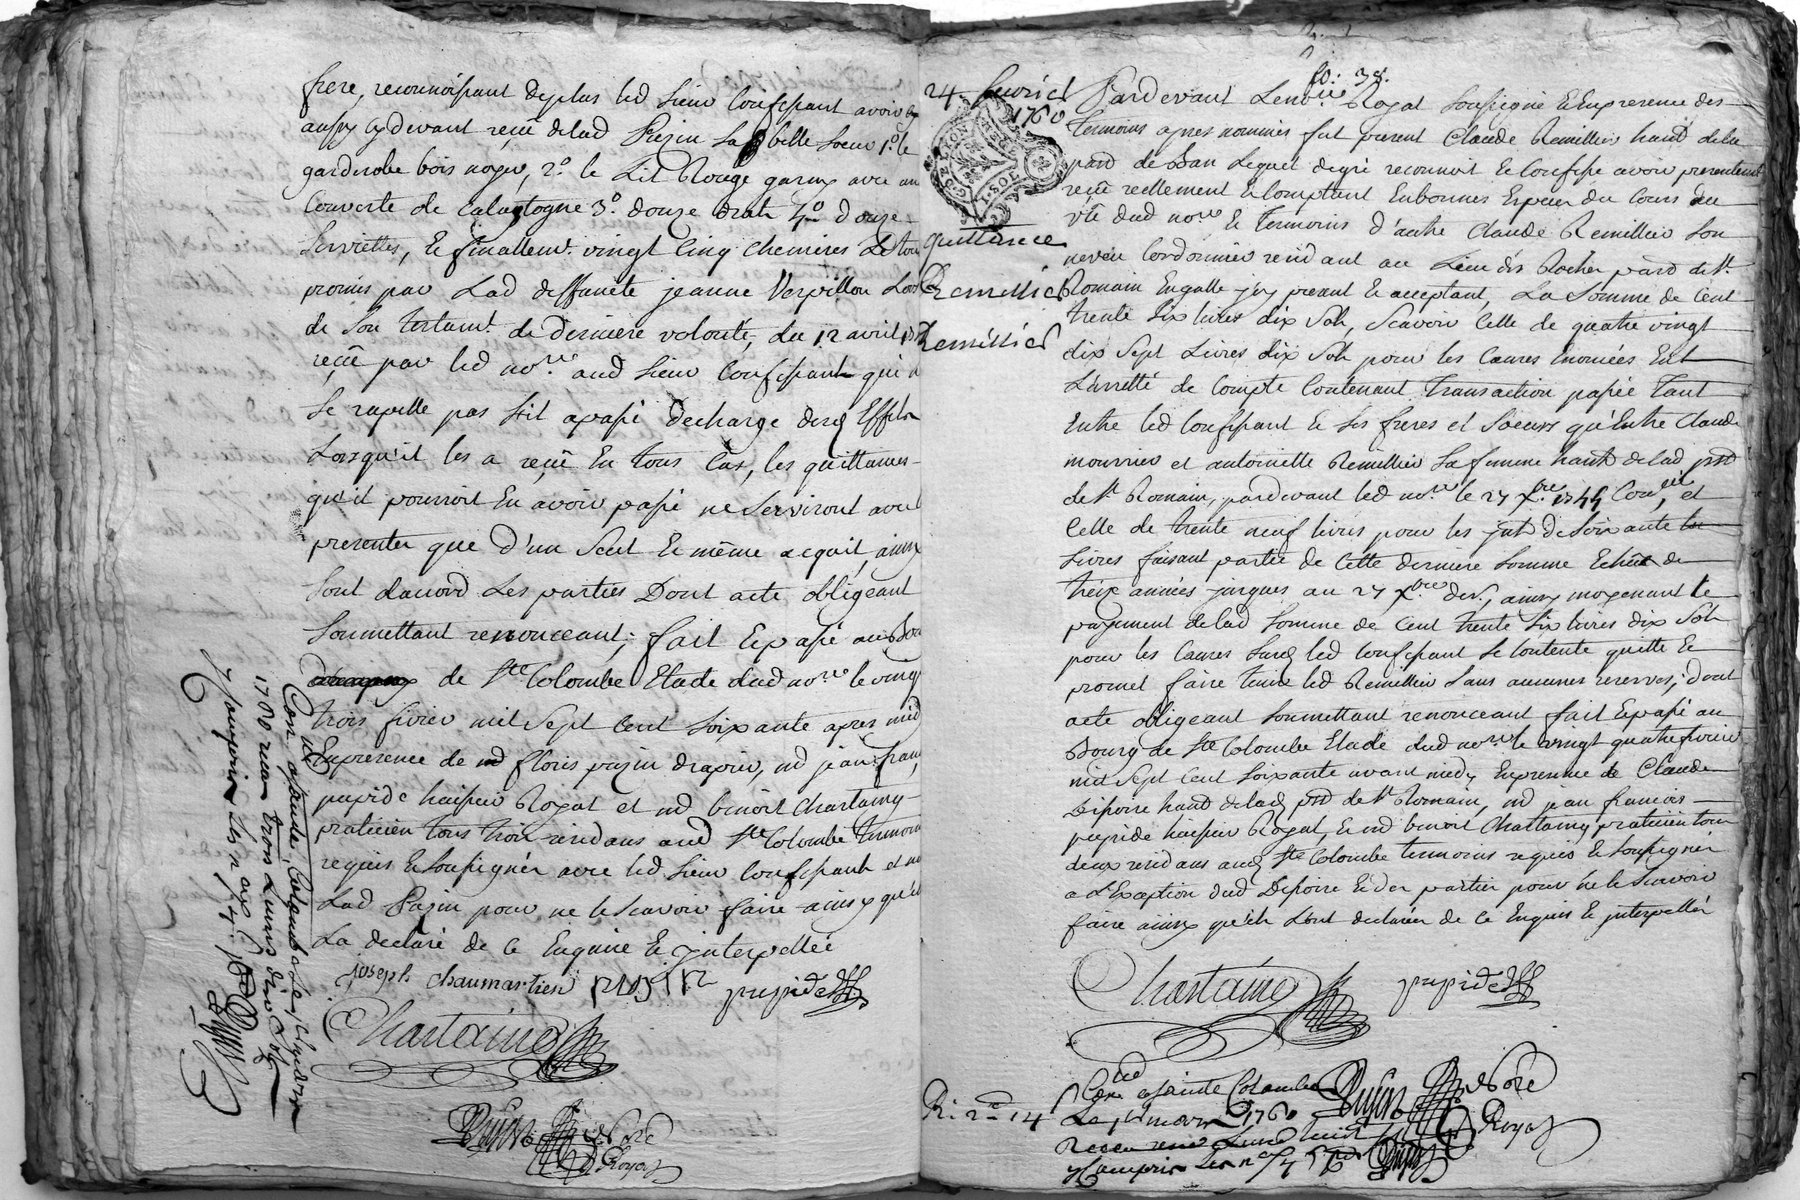 frere, reconnoissant de plus led sieur Confessant avoir
aussy cydevant reçüe de lad Pazin sa belle soeur 1.º le
garderobe bois noyer, 2.º le Lit Rouge garny avec un
Couverte de Catalogne 3.º douze drats 4.º douze
serviettes, & finallemt. vingt Cinq chemises Le tout
promis par Lad deffunte jeanne Verpillon Lors
de son testamt. de derniere volonté, du 12 avril
reçüe par led nore. aud sieur Confessant qui n
se rapelle pas s'il a passé decharge desd Effets
Lorsqu'il les a reçüe En tous Cas, les quittances
qu'il pourroit En avoir passé ne serviront avec
presentes que d'un seul & même acquit, ainsy
sont d'acord Les parties Dont acte obligeant
soumettant renonceant; fait & passé au Bou
de Ste Colombe Etude dud nore le vingt
trois fevrier mil sept cent soixante apres midy
En presence de md floris pazin drapier, md jean fran
pupide huissier Royal et md benoit chartainy
praticien tous trois residans aud Ste Colombe temoins
requis & soussignés avec led sieur Confessant et non
Lad Pazin pour ne le scavoir faire ainsy qu'ell
La declaré de ce Enquise & jnterpellée
joseph chaumartien pazin pupide
Chartainy
nore
Royal
Con a ste Colombe le
1760 recu trois Livres dix sols
y Compris les n
fo: 38.
24. fevrier
1760
G. DE LYON
quittance
Remillier
Remillier
Pardevant Le nore Royal soussigné & En presence des
temoins apres nommés fut present Claude Remillier habt de la
parr de Ban Lequel de gré reconnoit & Confesse avoir presentemt
reçüe reellement & Comptant En bonnes Especes du Cours au
vüe dud nore & temoins d'autre Claude Remillier son
neveu Cordonnier residant au Lieu des Roches parr de St.
Romain En galle jcy present & acceptant, La somme de Cent
trente six livres dix sols, scavoir Celle de quatre vingt
dix sept Livres dix sols pour les Causes Enoncées En L
L'arretté de Compte Contenant transaction passée tant
Entre led Confessant & ses freres et soeurs qu'Entre Claude
mourrier et antoinette Remillier sa femme habts de lad prr
de St Romain, pardevant led nore le 27 Xbre 1744 Conllé, et
Celle de trente neuf livres pour les jnts de soixante
Livres faisant partie de cette derniere somme Echüe de
treize années jusques au 27 Xbre der, ainsy moyenant le
payement de lad somme de Cent trente six livres dix sols
pour les Causes susd led Confessant se Contente quitte &
promet faire tenir led Remillier sans aucunes reserves; dont
acte obligeant soumettant renonceant fait & passé au
Bourg de Ste Colombe Etude dud nore le vingt quatre fevrier
mil sept cent soixante avant midy En presence de Claude
Depoire habt de lad prr de St Romain, md jean francois
pupide huissier Royal, & md benoit Chartainy praticien tous
deux residans aud Ste Colombe temoins requis & soussignés
a L'Exception dud Depoire & des parties pour ne le scavoir
faire ainsy qu'ils L'ont declarés de ce Enquis & jnterpellés
Chartainy pupide
nore
Royal
Con a sainte Colombe
Le 1er mars 1760
Recu
y Compris Les n